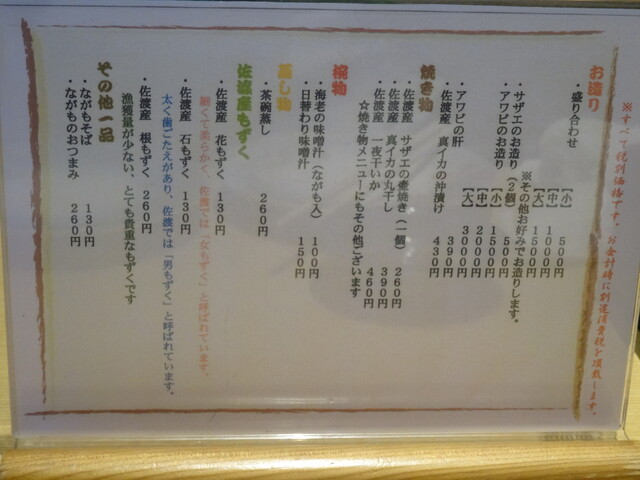 ※すべて税別価格です。お会計時に別途消費税を頂戴します。
お造り
・盛り合わせ
【小】 500円
【中】 1000円
【大】 1500円
※その他お好みでお造りします。
・サザエのお造り(2個) 500円
・アワビのお造り 【小】 1500円
【中】 2000円
【大】 3000円
・アワビの肝 390円
・佐渡産 真イカの沖漬け 430円
焼き物
・佐渡産 サザエの壷焼き(一個) 260円
・佐渡産 真イカの丸干し 390円
・佐渡産 一夜干いか 460円
☆焼き物メニューにもその他ございます
椀物
・海老の味噌汁(ながも入) 100円
・日替わり味噌汁 150円
蒸し物
・茶碗蒸し 260円
佐渡産もずく
・佐渡産 花もずく 130円
細くて柔らかく、佐渡では「女もずく」と呼ばれています。
・佐渡産 石もずく 130円
太く歯ごたえがあり、佐渡では「男もずく」と呼ばれています。
・佐渡産 根もずく 260円
漁獲量が少ない、とても貴重なもずくです
その他一品
・ながもそば 130円
・ながものおつまみ 260円